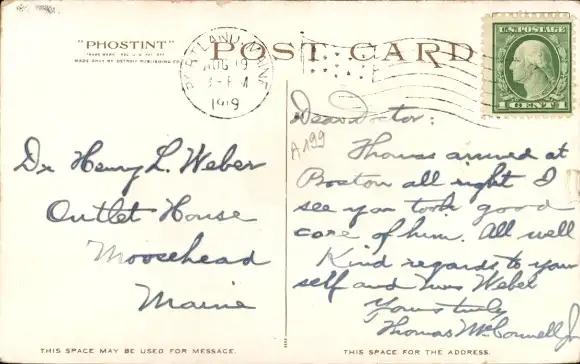 "PHOSTINT"
MADE ONLY BY DETROIT PUBLISHING CO.
POST CARD
PORTLAND, MAINE
AUG 19
1919
U.S. POSTAGE
1 CENT 1
Dr Henry L. Weber
Outlet House
Moosehead
Maine
A199
Dear Doctor:
Thomas arrived at
Boston all right I
see you took good
care of him. All well
Kind regards to your
self and Mrs Weber
Yours truly
Thomas McConnell Jr
THIS SPACE MAY BE USED FOR MESSAGE.
THIS SPACE FOR THE ADDRESS.